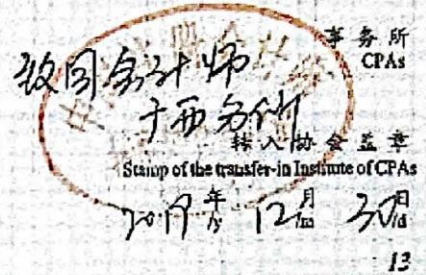 事务所
CPAs
致同会计师
转入协会盖章
Stamp of the transfer-in Institute of CPAs
2019年 12月 30日
/y /m /d
13